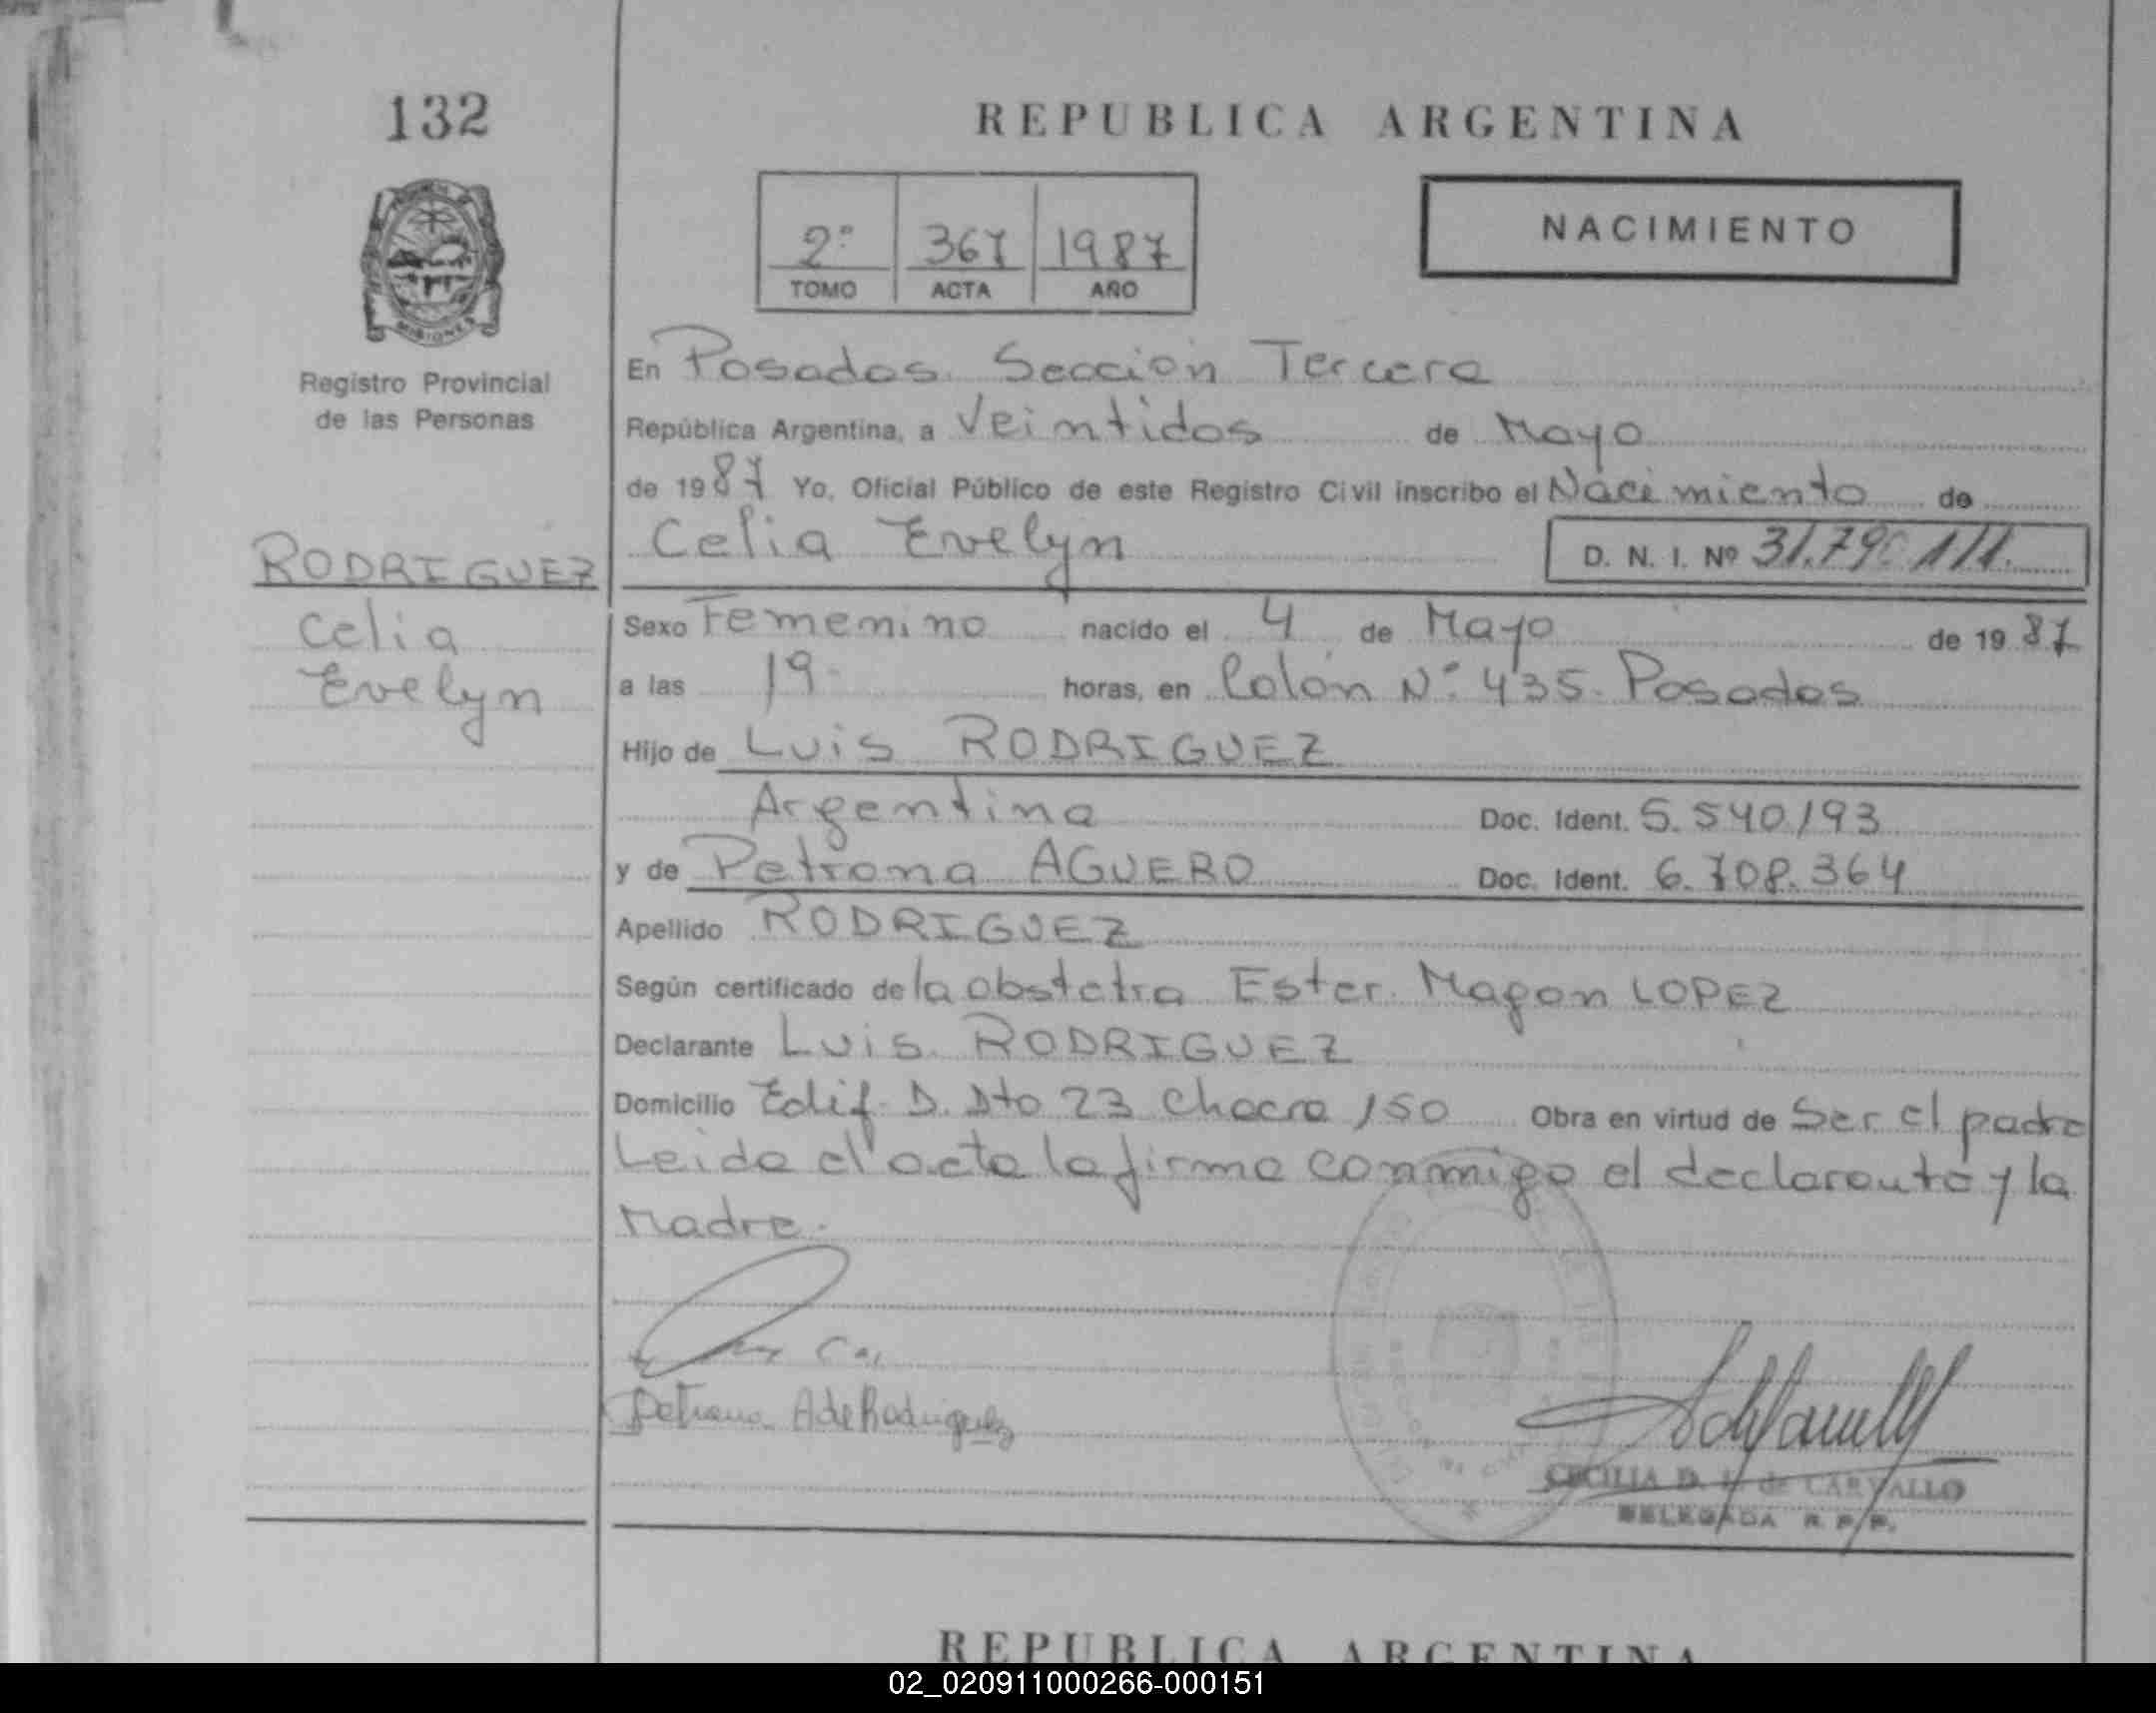 132
REPUBLICA ARGENTINA
2º 367 1987
TOMO ACTA AÑO
NACIMIENTO
MISIONES
Registro Provincial
de las Personas
En Posadas. Sección Tercera
República Argentina, a Veintidos de Mayo
de 1987 Yo, Oficial Público de este Registro Civil inscribo el Nacimiento de
Celia Evelyn
D. N. I. Nº 31.790.111.
RODRIGUEZ
Celia
Evelyn
Sexo Femenino nacido el 4 de Mayo de 1987
a las 19 horas, en Colón Nº 435. Posadas
Hijo de Luis RODRIGUEZ
Argentina Doc. Ident. 5.540193
y de Petrona AGUERO Doc. Ident. 6.708.364
Apellido RODRIGUEZ
Según certificado de la obstetra Ester. Magon LOPEZ
Declarante Luis. RODRIGUEZ
Domicilio Edif. D. Dto 23 Chacra 150 Obra en virtud de Ser el padre
Leida el acta la firma conmigo el declarante y la
Madre.
Petrona A de Rodriguez
CECILIA D. de CARVALLO
DELEGADA R. P. P.
REPUBLICA ARGENTINA
02_020911000266-000151